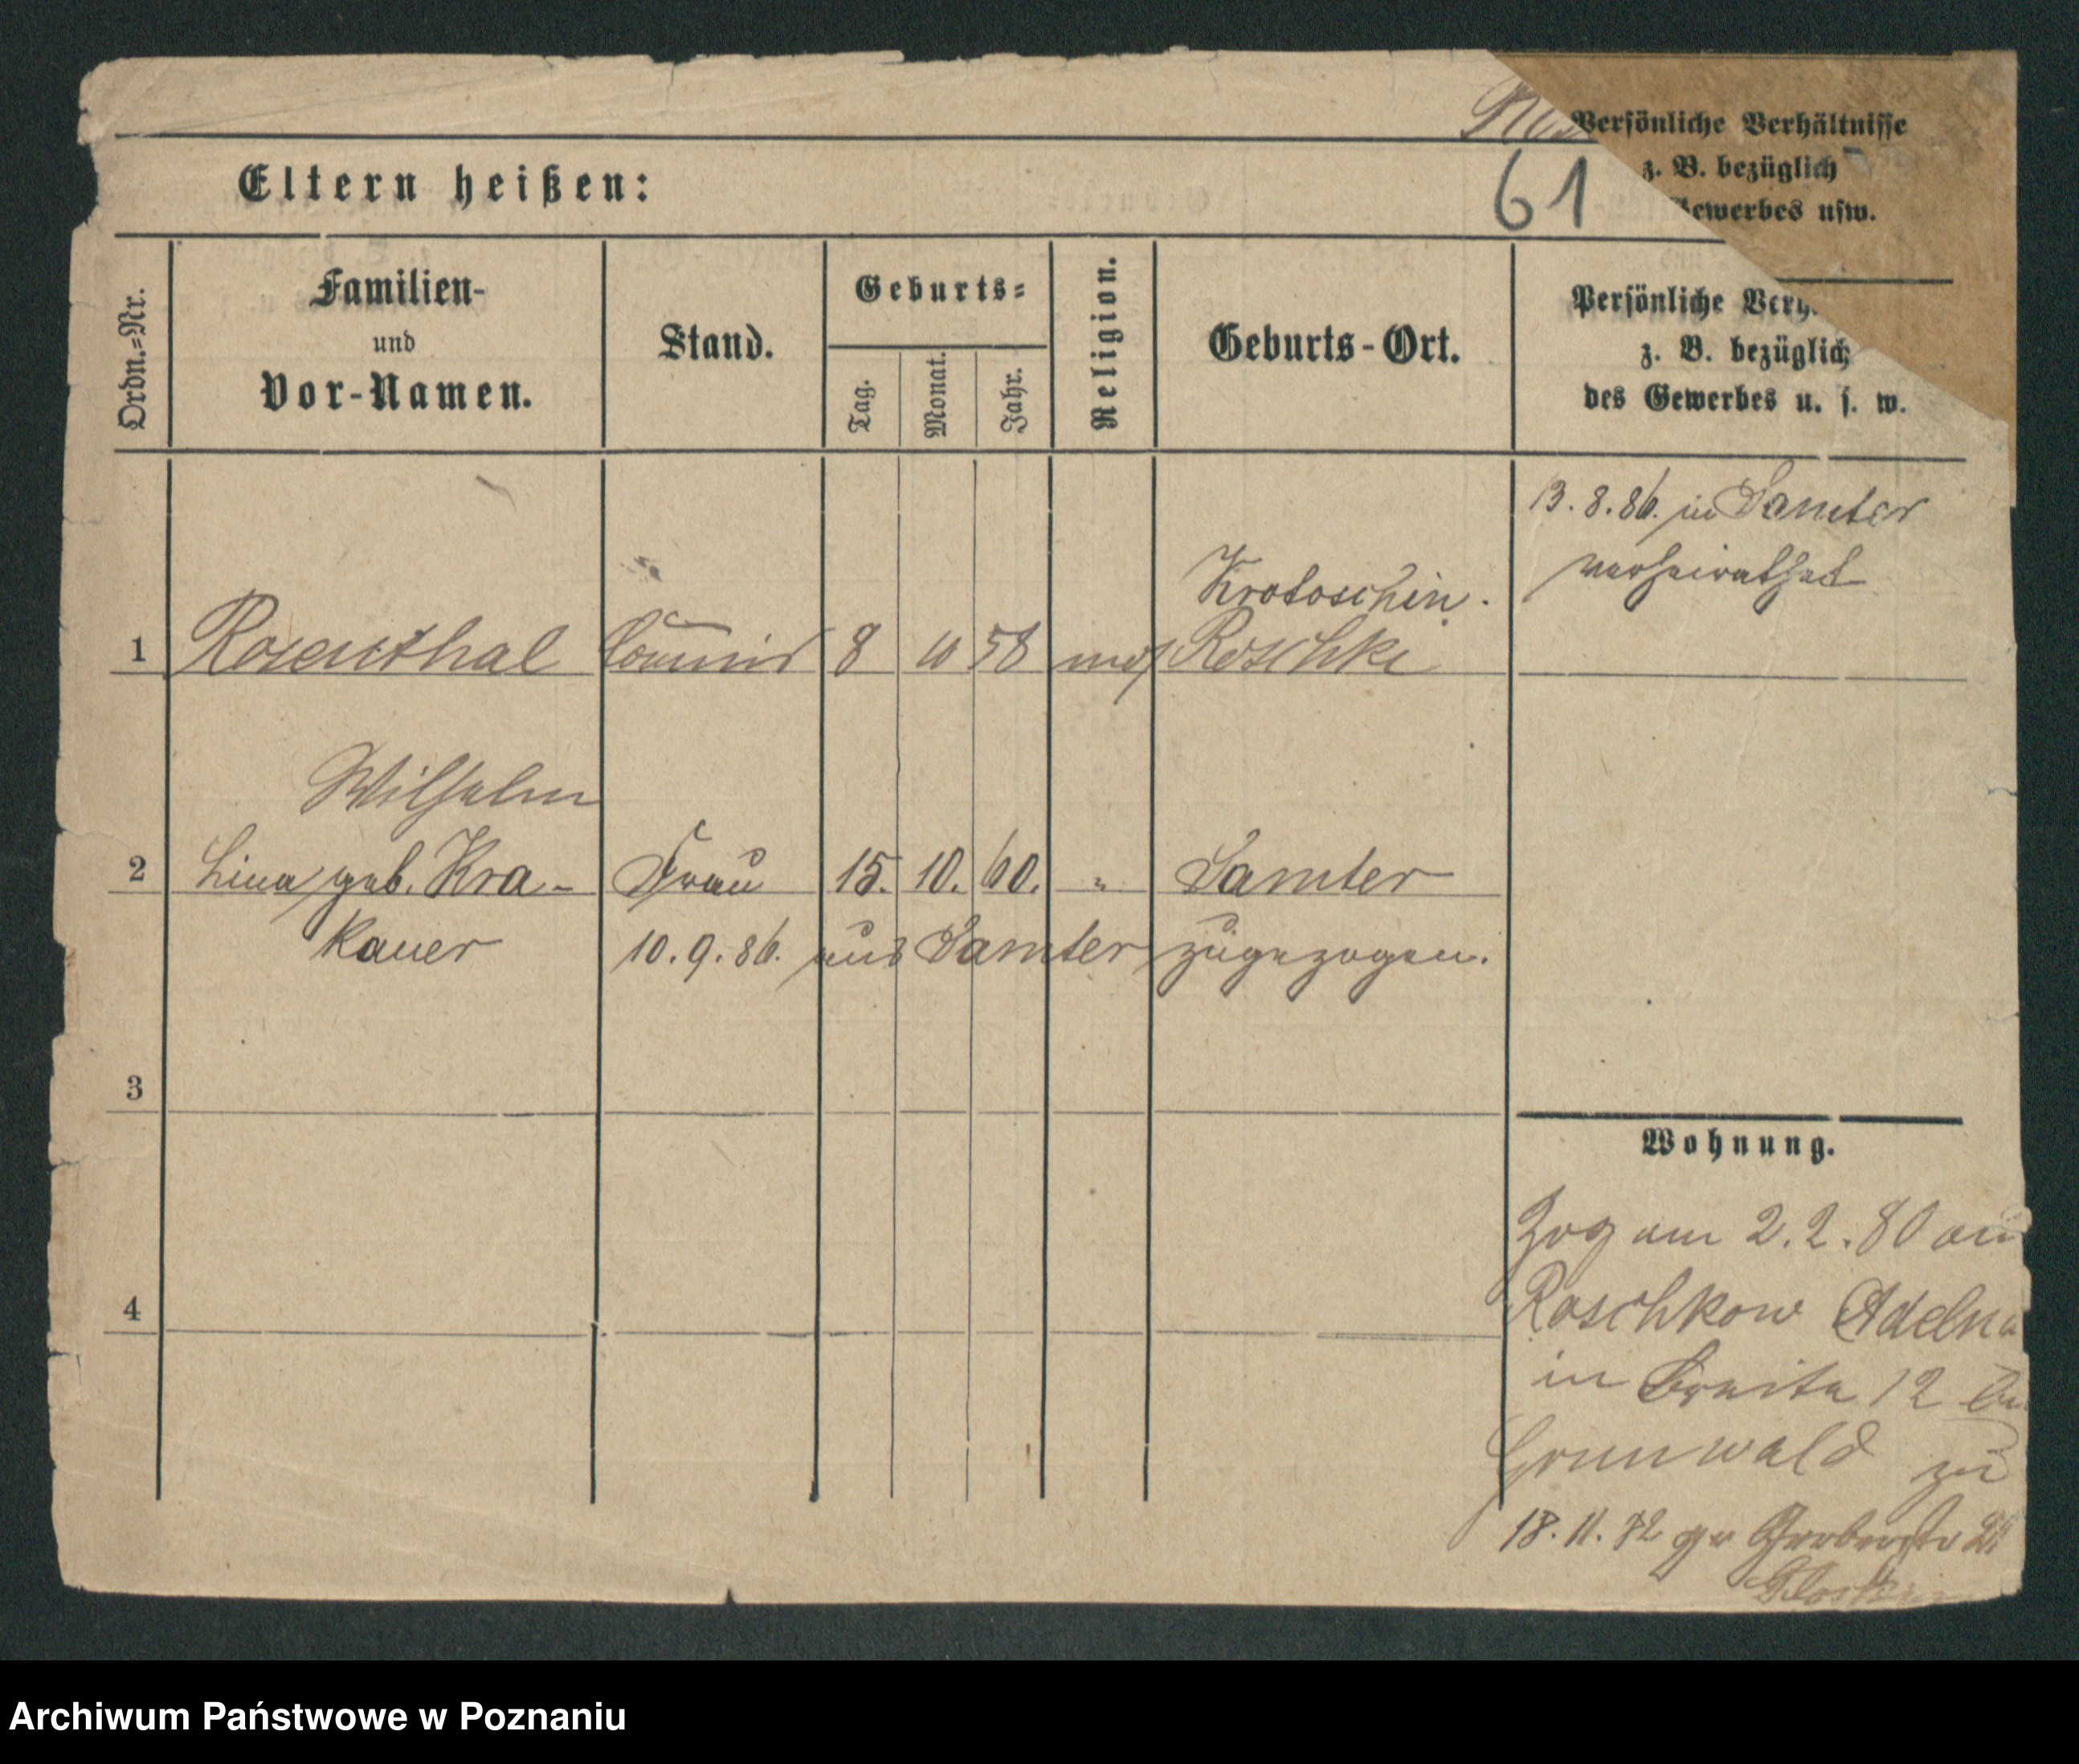 Persönliche Verhältnisse
z. B. bezüglich
Gewerbes usw.
Eltern heißen:
61
Ordn.=Nr.
Familien-
und
Vor-Namen.
Stand.
Geburts=
Tag.
Monat.
Jahr.
Religion.
Geburts-Ort.
Persönliche Verh
z. B. bezüglich
des Gewerbes u. s. w.
13. 8. 86. in Samter
verheirathet
Krotoschin.
1 Rosenthal Commis 8 58 mos Roschke
Wilhelm
2 Lina geb. Kra- Frau 15. 10. 60. " Samter
kauer 10. 9. 86. aus Samter zugezogen.
3
Wohnung.
Zog am 2. 2. 80 aus
4
Roschkow Adelna
in Breite 12
Grunwald zu
18. 11. 82 gr Gerberstr
Archiwum Państwowe w Poznaniu